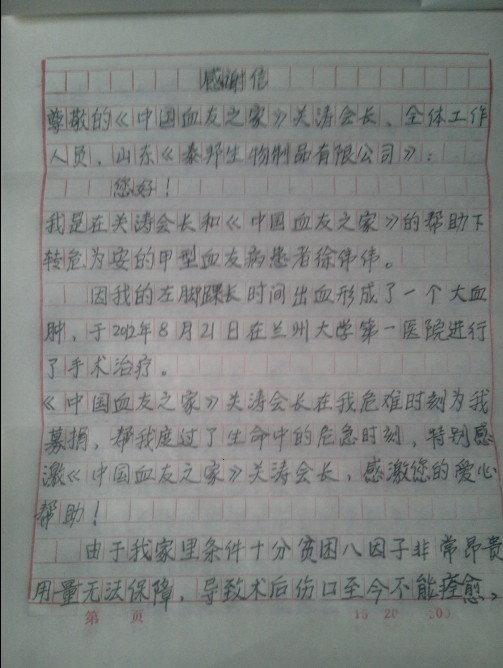 感谢信
尊敬的《中国血友之家》关涛会长、全体工作
人员，山东《泰邦生物制品有限公司》：
您好！
我是在关涛会长和《中国血友之家》的帮助下
转危为安的甲型血友病患者徐伟伟。
因我的左脚踝长时间出血形成了一个大血
肿，于2012年8月21日在兰州大学第一医院进行
了手术治疗。
《中国血友之家》关涛会长在我危难时刻为我
募捐，帮我度过了生命中的危急时刻，特别感
激《中国血友之家》关涛会长，感激您的爱心
帮助！
由于我家里条件十分贫困八因子非常昂贵
用量无法保障，导致术后伤口至今不能痊愈。
第 页